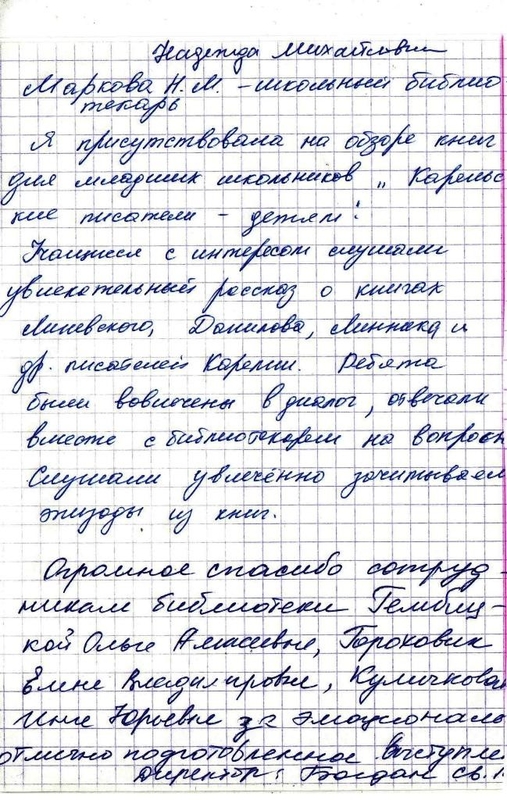 Надежда Михайловна
Маркова Н.М. – школьный библио-
текарь
Я присутствовала на обзоре книг
для младших школьников „Карельс
кие писатели – детям".
Учащиеся с интересом слушали
увлекательный рассказ о книгах
Линевского, Данилова, Линнака и
др. писателей Карелии. Ребята
были вовлечены в диалог, отвечали
вместе с библиотекарем на вопросы
Слушали увлечённо зачитываем
эпизоды из книг.
Огромное спасибо сотруд-
никам библиотеки Гембиц-
кой Ольге Алексеевне, Горохович
Елене Владимировне, Куличковой
Инне Юрьевне за эмоциональ
отлично подготовленное выступле
Директор: Богдан Св.